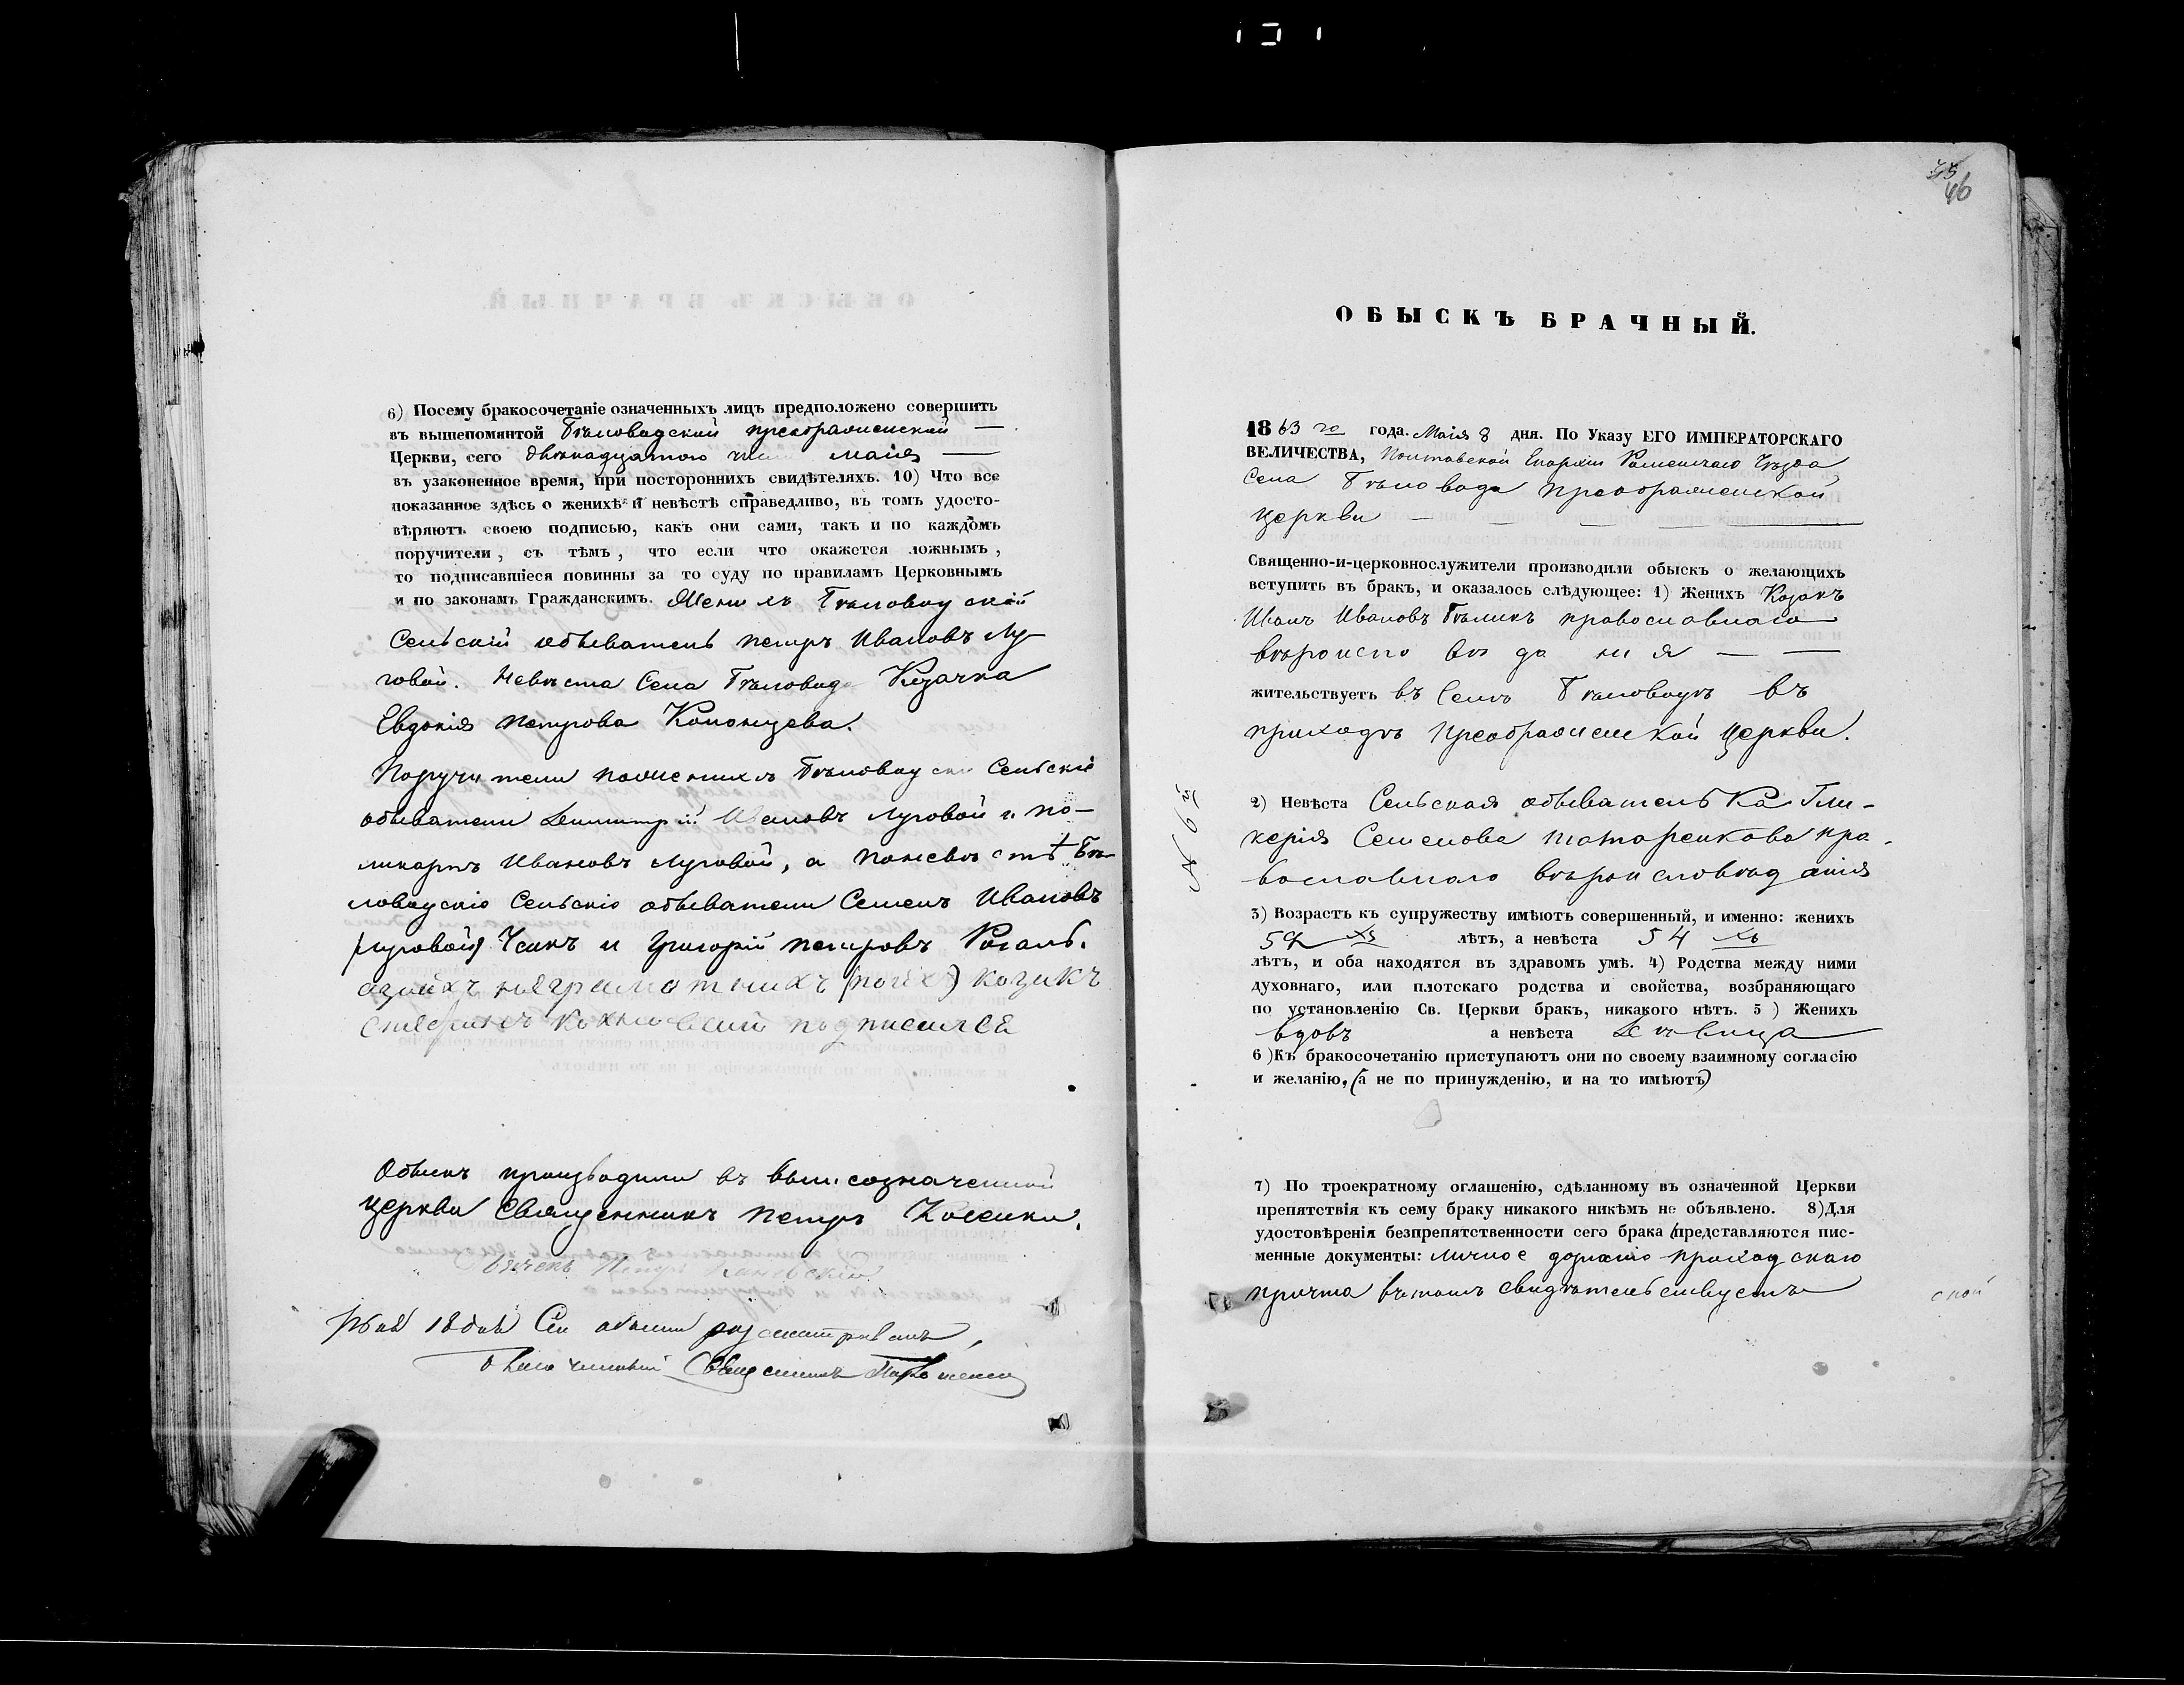 6) Посему бракосочетаніе означенныхъ лицъ предположено совершить
въ вышепомянтой Бѣловодской преображенской —
Церкви, сего двенадцатого числа Маія —
въ узаконенное время, при постороннихъ свидѣтеляхъ. 10) Что все
показанное здѣсь о женихѣ и невѣстѣ справедливо, въ томъ удосто-
вѣряютъ своею подписью, какъ они сами, такъ и по каждомъ
поручители, съ тѣмъ, что если что окажется ложнымъ,
то подписавшіеся повинны за то суду по правиламъ Церковнымъ
и по законамъ Гражданскимъ. Женихъ Бѣловодскій
Сельскій обыватель петръ Ивановъ Лу-
говой. Невѣста Села Бѣловода Казачка
Евдокія петрова Кононцева.
Поручители поженихѣ Бѣловодскіе Сельскіе
обыватели Димитрій Ивановъ Луговой и По-
ликарпъ Ивановъ Луговой, а поневѣстѣ Бѣ-
ловодскіе Сельскіе обыватели Семенъ Ивановъ
Луговой и Григорій петровъ
неграмотнихъ козакъ
подписался
Обыскъ производили въ вышеозначенной
церкви Священникъ петръ
18 обыскъ разсматривалъ,
Благочинный Священникъ
45
46
ОБЫСКЪ БРАЧНЫЙ.
1863 го года. Маія 8 дня. По Указу ЕГО ИМПЕРАТОРСКАГО
ВЕЛИЧЕСТВА, Полтавской Епархіи Роменскаго Уѣзда
Села Бѣловода преображенской
церкви —
Священно-и-церковнослужители производили обыскъ о желающихъ
вступить въ бракъ, и оказалось слѣдующее: 1) Женихъ Козакъ
Иванъ Ивановъ Бѣликъ православнаго
вѣроисповѣданія — —
жительствуетъ въ Селѣ Бѣловодѣ въ
приходѣ преображенской церкви.
№ 6й
2) Невѣста Сельская обывателька Гли-
керія Семенова Татаренкова пра-
вославнаго вѣроисповѣданія
3) Возрастъ къ супружеству имѣютъ совершенный, и именно: женихъ
хъ лѣтъ, а невѣста 54 хъ
лѣтъ, и оба находятся въ здравомъ умѣ. 4) Родства между ними
духовнаго, или плотскаго родства и свойства, возбраняющаго
по установленію Св. Церкви бракъ, никакого нѣтъ. 5 ) Женихъ
вдовъ а невѣста Дѣвица
6 )Къ бракосочетанію приступаютъ они по своему взаимному согласію
и желанію, (а не по принужденію, и на то имѣютъ)
7) По троекратному оглашенію, сдѣланному въ означенной Церкви
препятствія къ сему браку никакого никѣмъ не объявлено. 8)Для
удостовѣренія безпрепятственности сего брака (представляются пис-
менные документы: личное дознаніе приходскаго
причта вътомъ свидѣтельствуетъ